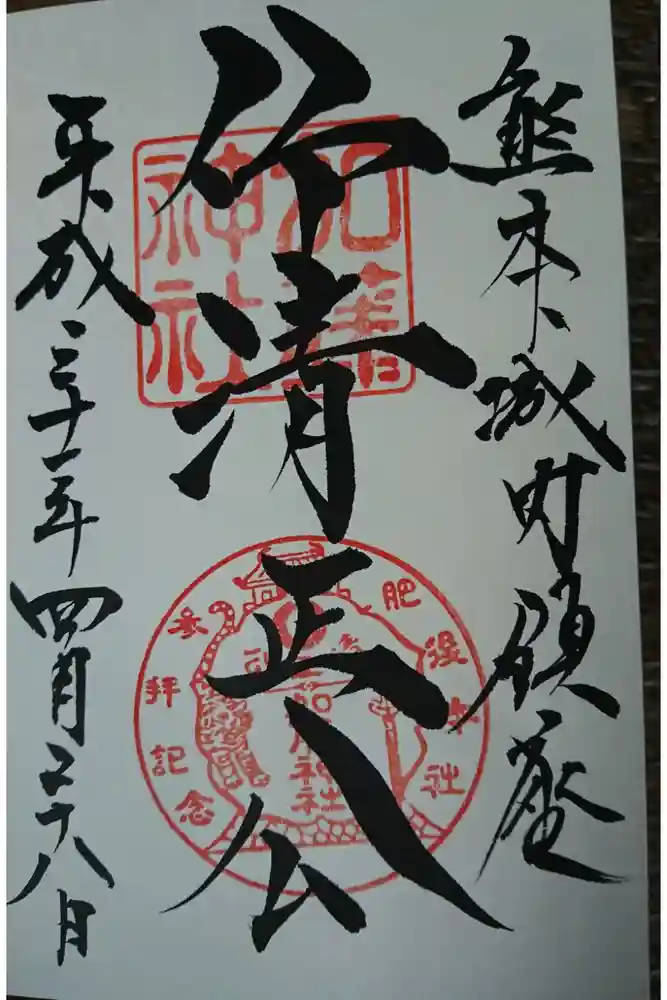 熊本城内鎮座
仰清正公
平成三十一年四月二十八日
加藤神社
肥後本社
参拝記念
加藤神社